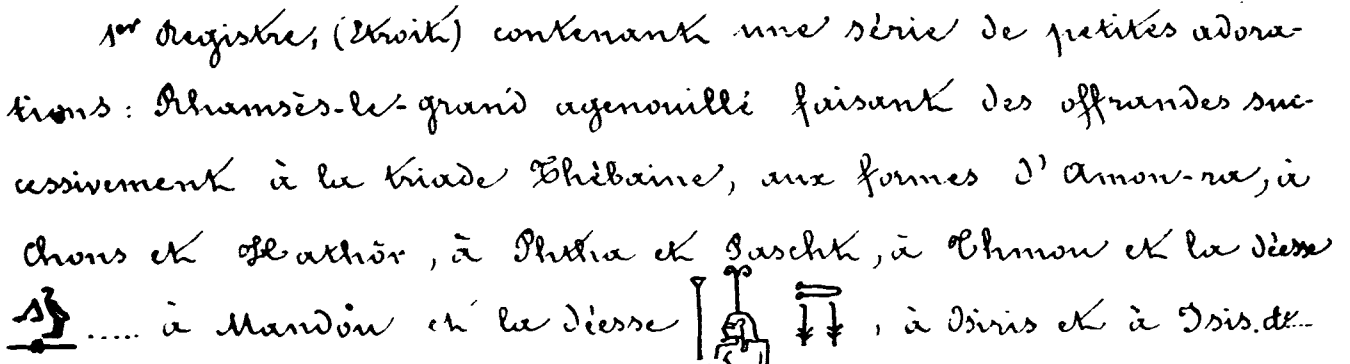 1er Registre, (Étroit) contenant une série de petites adora-
tions : Rhamsès-le-grand agenouillé faisant des offrandes suc-
cessivement à la triade Thébaine, aux formes d'Amon-ra, à
Chons et Hathôr, à Phtha et Pascht, à Thmou et la déesse
..... à Mandou et la déesse , à Osiris et à Isis. &c...